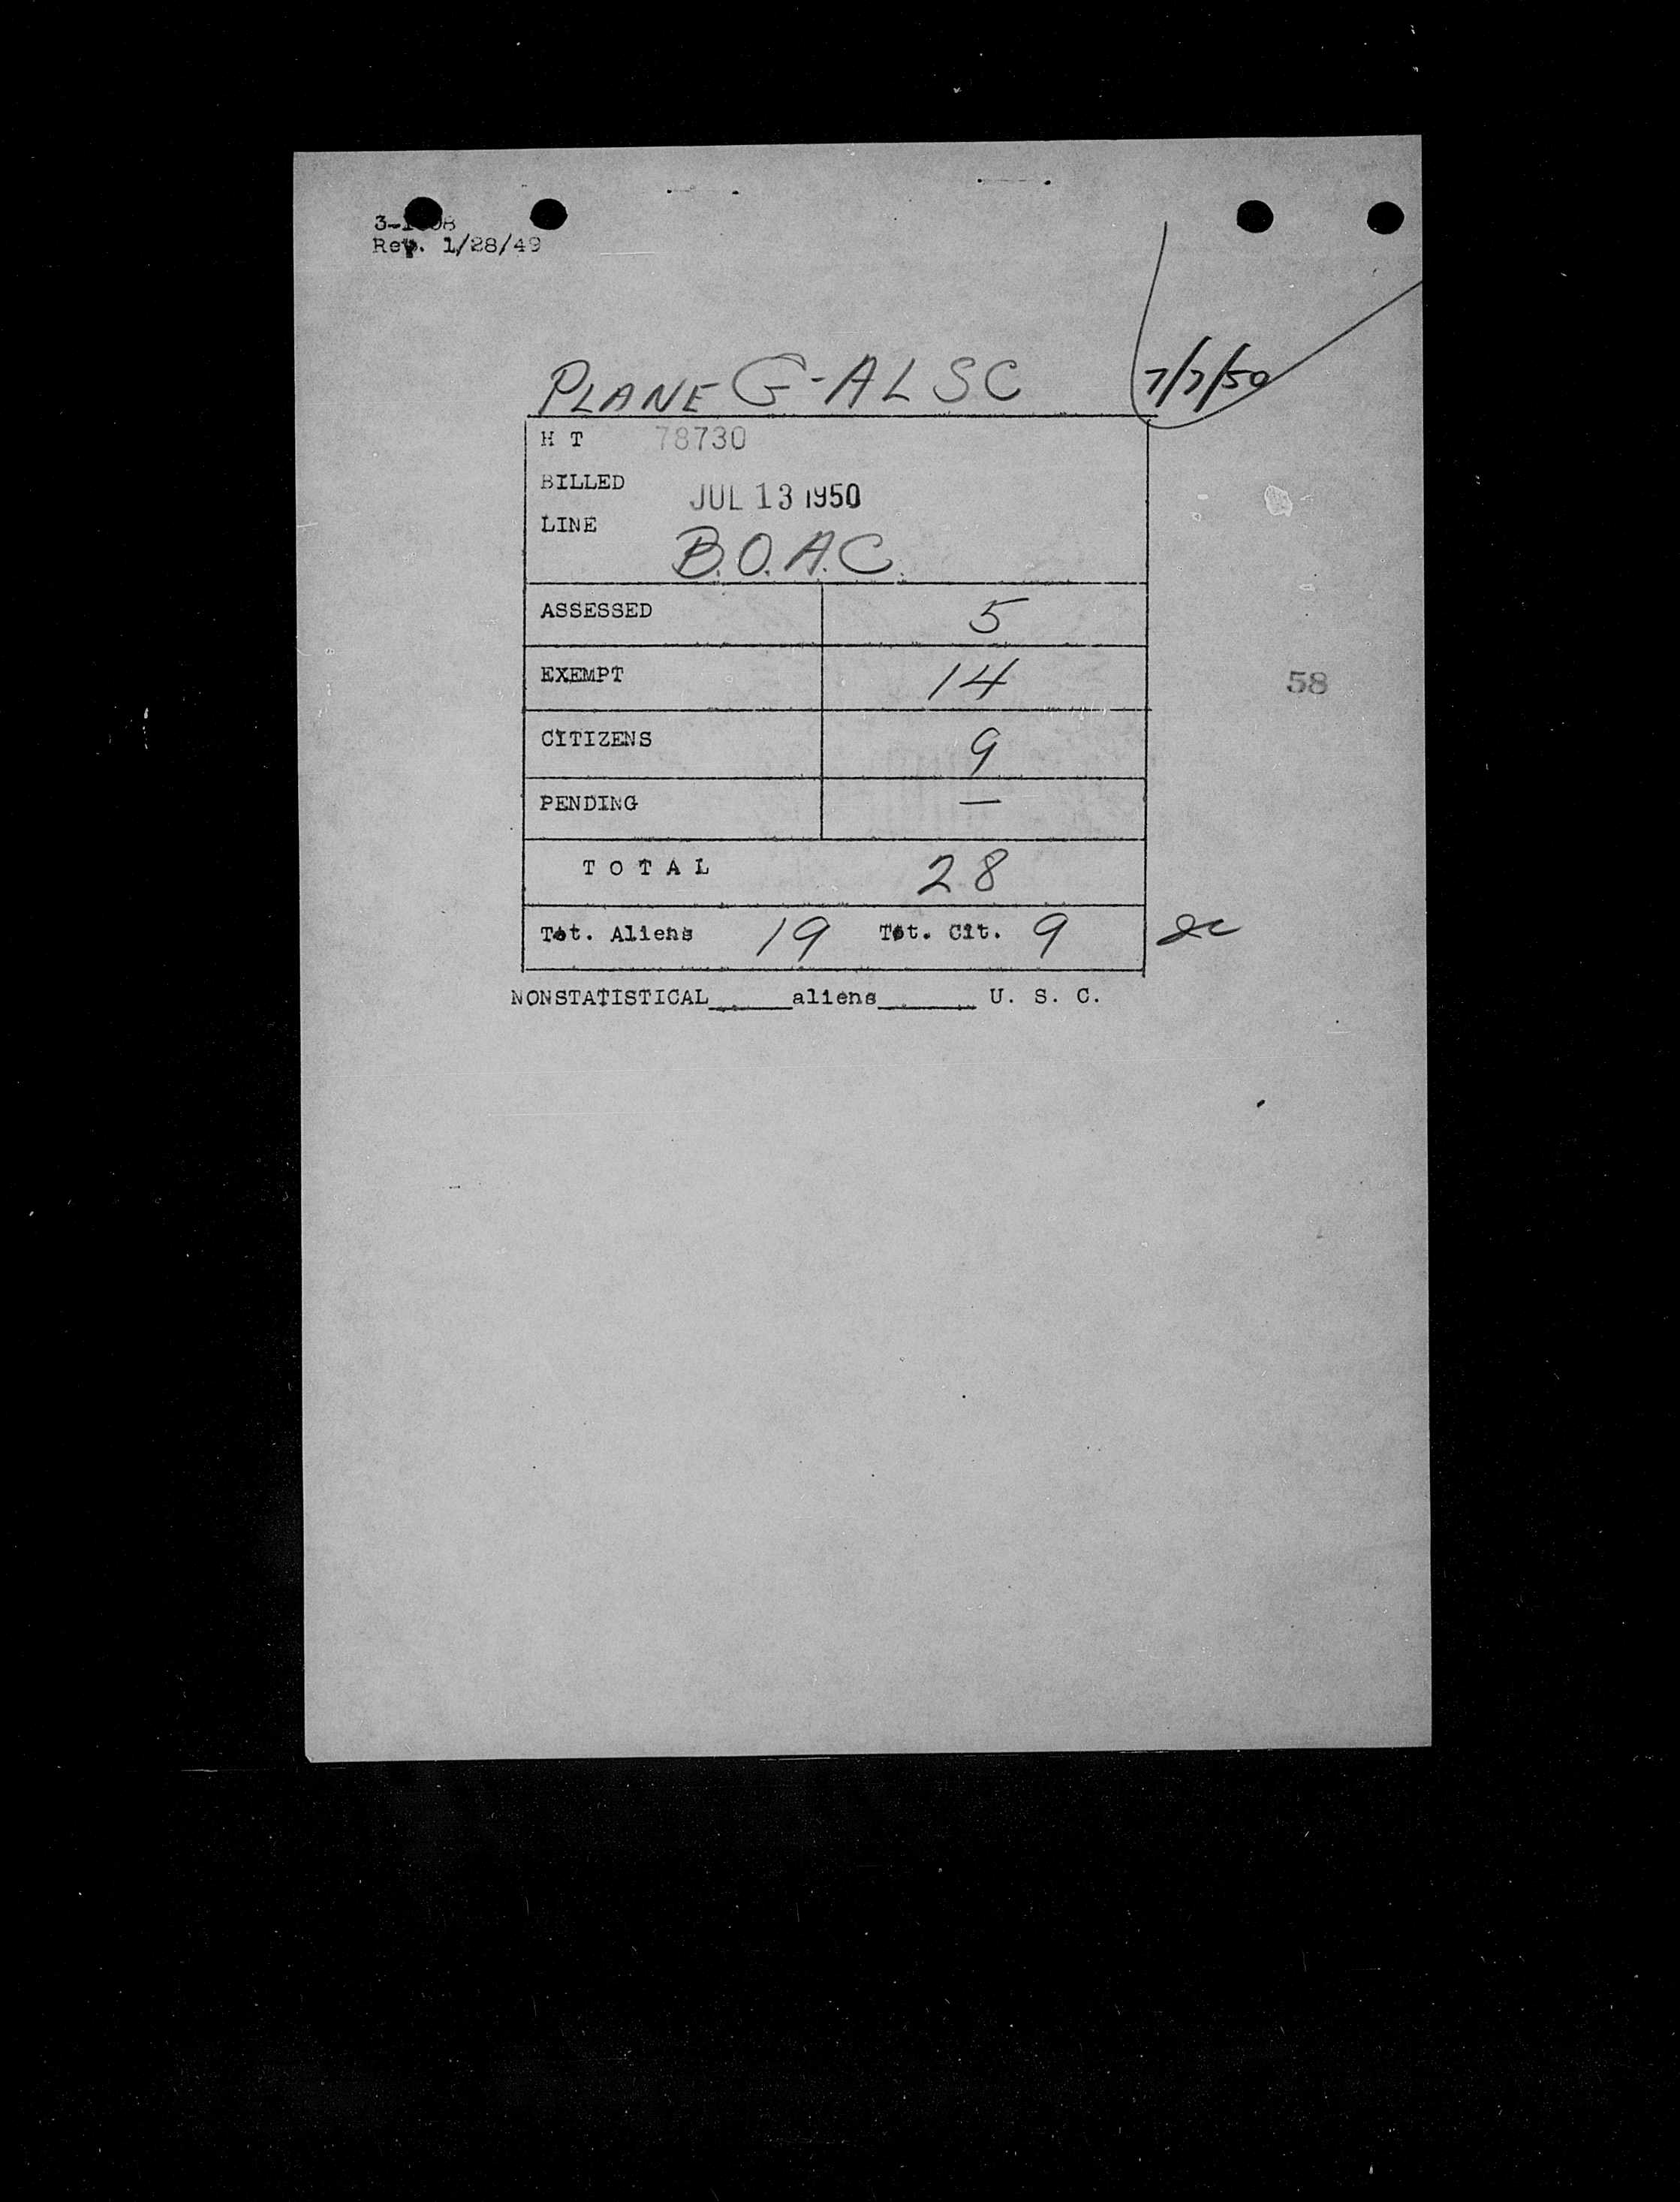 Rev. 1/28/49
PLANE G-ALSC 7/7/50
H T 78730
BILLED JUL 13 1950
LINE B.O.A.C.
ASSESSED 5
EXEMPT 14
58
CITIZENS 9
PENDING —
TOTAL 28
Tot. Aliens 19 Tot. Cit. 9
NONSTATISTICAL______aliens_______ U. S. C.